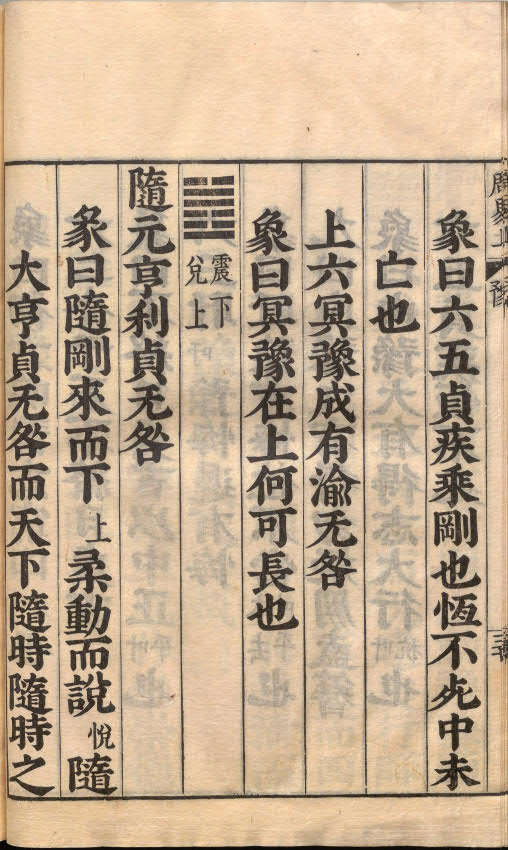 周易上 豫
象曰六五貞疾乘剛也恆不死中未
亡也
上六冥豫成有渝无咎
象曰冥豫在上何可長也
震下
兌上
隨元亨利貞无咎
彖曰隨剛來而下上柔動而說悅隨
大亨貞无咎而天下隨時隨時之